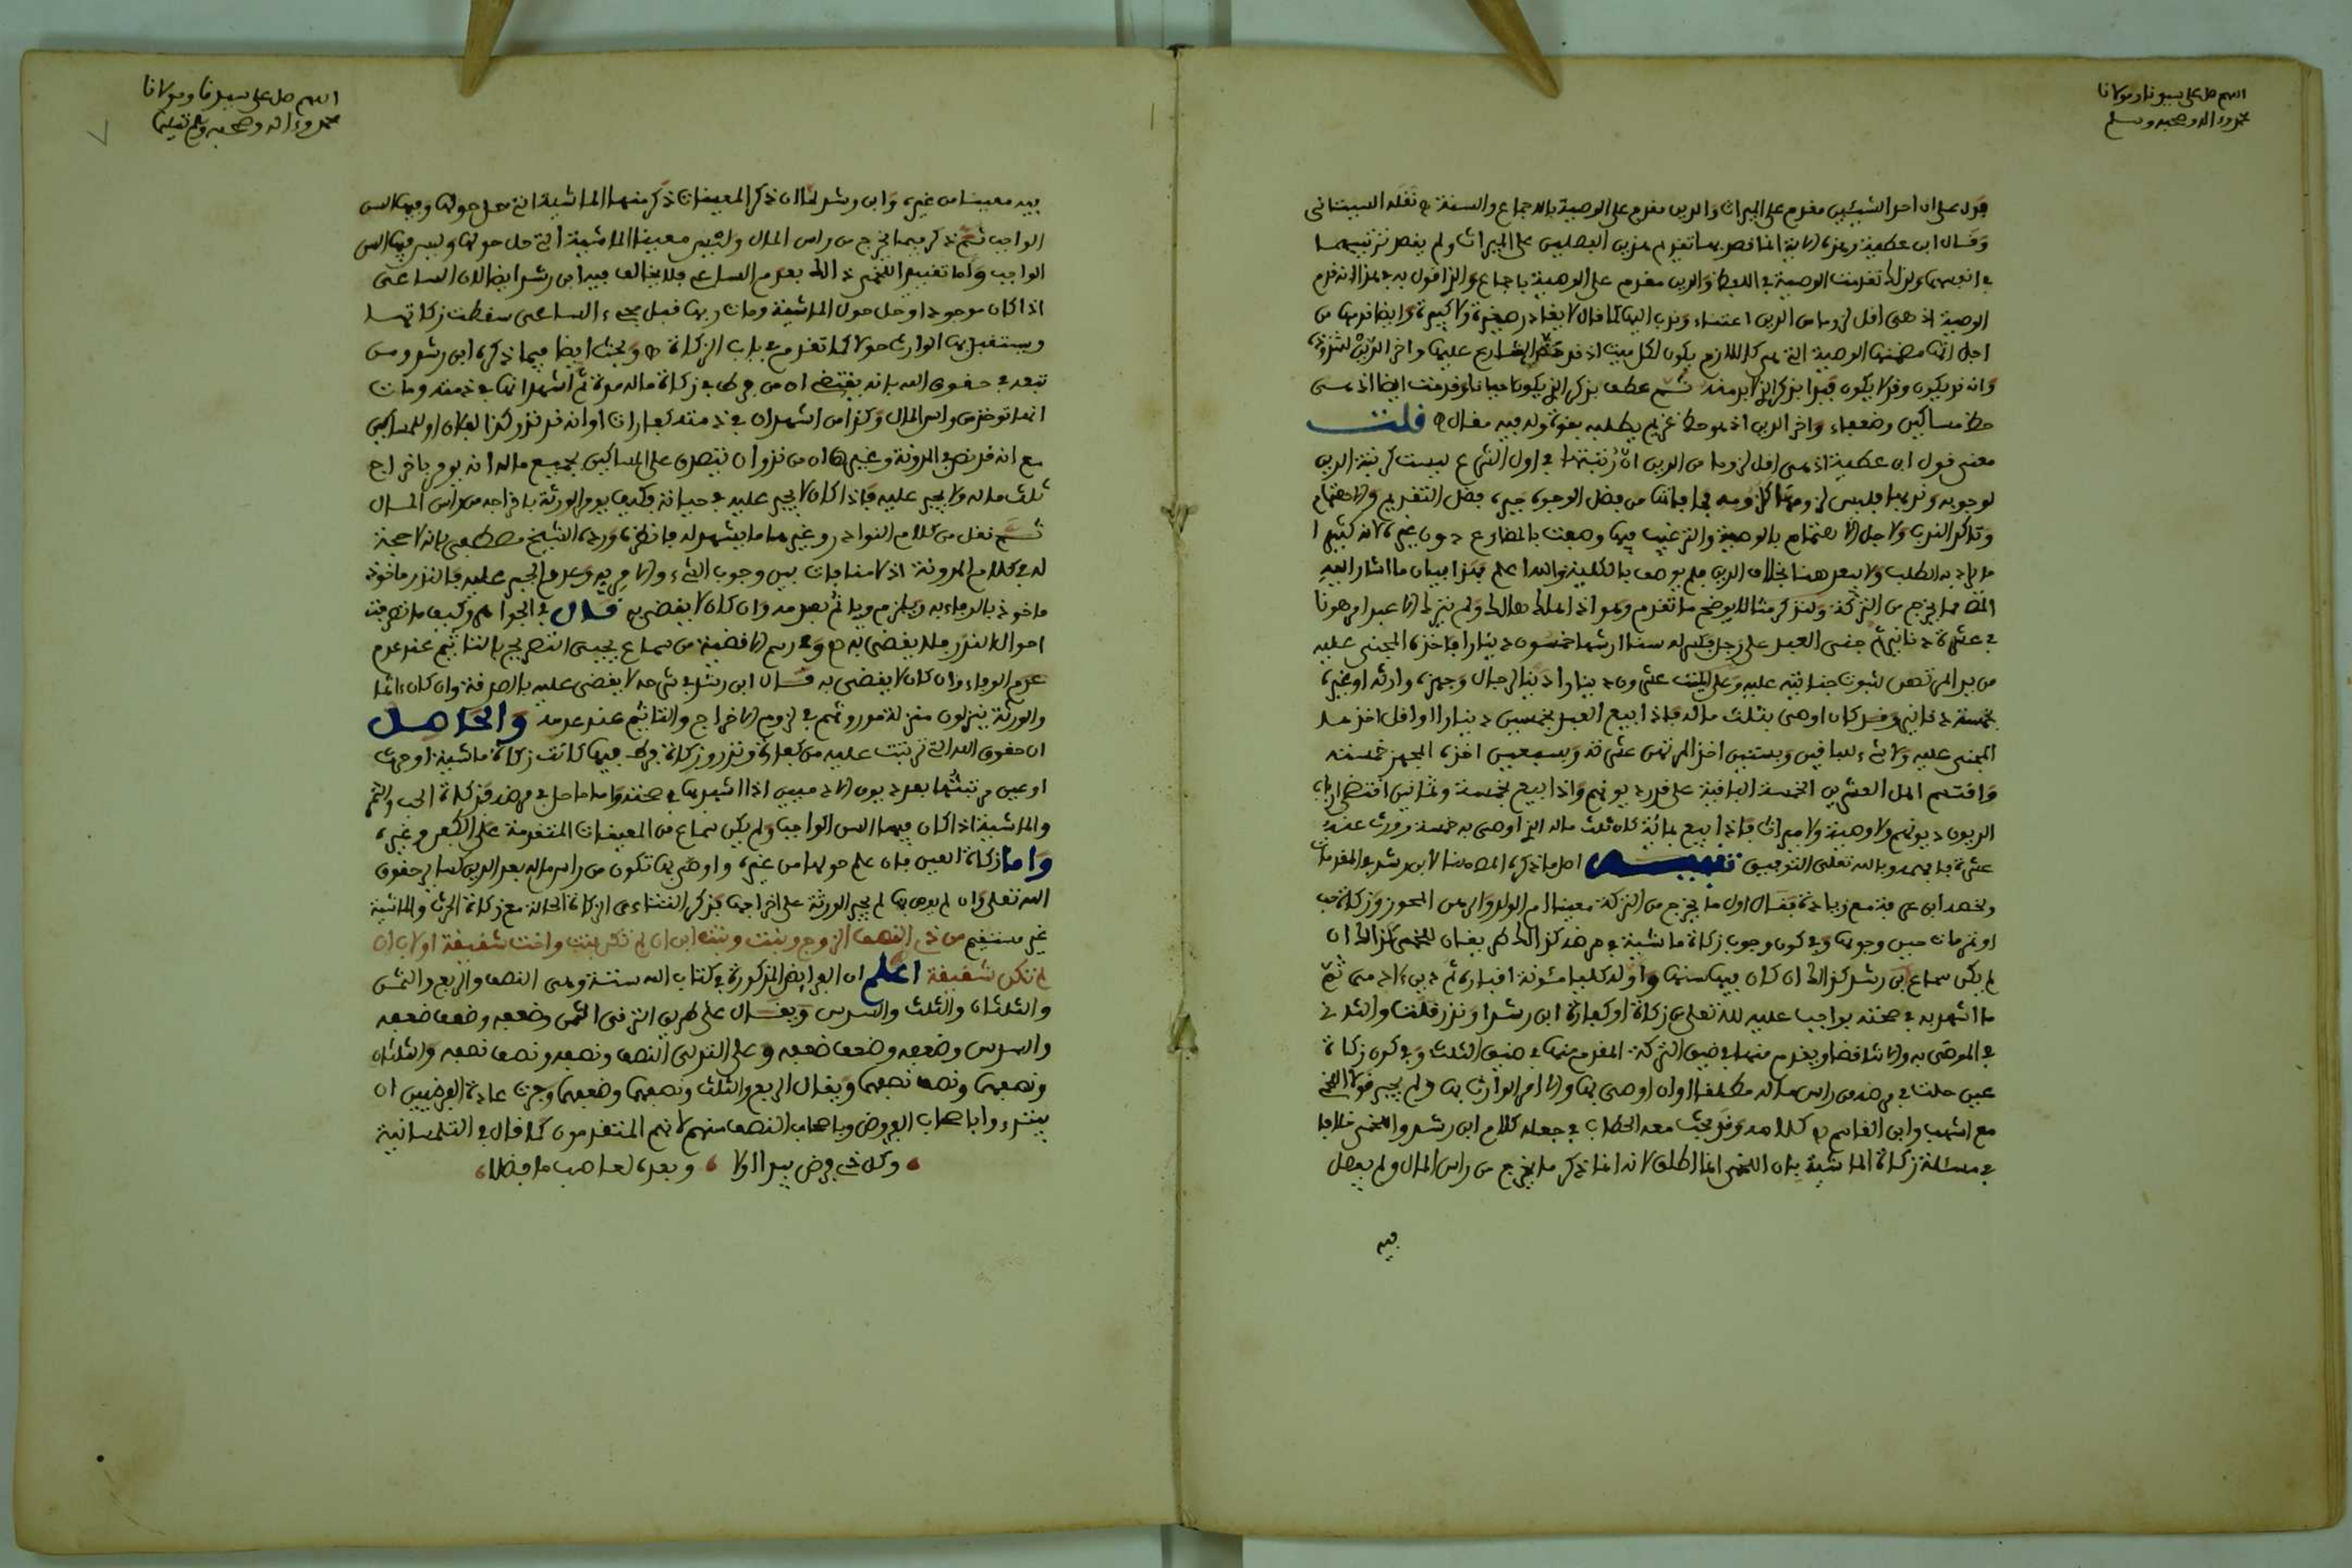 اللهم صل على سيدنا ومولانا
محمد وءاله وصحبه وسلم
فدل على ان احد الشيئين مقدم على الميراث والدين مقدم على الوصية بالاجماع والسنة نقله البستاني
وقال ابن عطية وهذه الاية انما قصد بها تقديم هذين الفصلين على الميراث ولم يقصد ترتيبهما
في انفسهما ولذلك تقدمت الوصية في اللفظ والدين مقدم على الوصية باجماع والذي اقول به في هذا انه قدم
الوصية اذ هي اقل لزوما من الدين اعتناء وندب اليها كما قال لا يغادر صغيرة ولا كبيرة وايضا قدمها من
اجل انها مضمنها الوصية التي هي كاللازم يكون لكل ميت اذ قد حض الشارع عليها واخر الدين لشذوذه
وانه قد يكون وقد لا يكون فبدا بذكر الذي لا بد منه ثم عطف بذكر الذي يكون احيانا وقدمت ايضا اذ هي
حظ مساكين وضعفاء واخر الدين اذ هو حظ غريم يطلبه بقوة وله فيه مقال قلت
معنى قول ابن عطية اذ هي اقل لزوما من الدين ان رتبتها في اول الشرع ليست كرتبة الدين
لوجوبه وندبها فليس لزومها كلزومه
ما يراد به الطلب ولا بعد هنا بخلاف الدين فلم يوصف بالكلية والله اعلم هذا بيان ما اشار اليه
المص مما يخرج من التركة ولنذكر مثالا يوضح ما تقدم وهو اذا هلك هالك ولم يترك الا عبدا مرهونا
في عشرة دنانير ثم جنى العبد على رجل
من يد المرتهن لثبوت جنايته عليه وعلى الميت عشرون دينارا دينا لرجال وجهزه وارثه او غيره
بخمسة دنانير وقد كان اوصى بثلث ماله فاذا بيع العبد بخمسين دينارا او اقل اخذها
المجني عليه ولا شيء للباقين وبستين اخذ المرتهن عشرته وبسبعين اخذ المجهز خمسته
واقتسم اهل العشرين الخمسة الباقية على قدر ديونهم واذا بيع بخمسة وثمانين اقتضى ارباب
الديون ديونهم ولا وصية ولا ميراث فاذا بيع بمائة كان ثلث ماله الذي اوصى به خمسة وورث عنه
عشرة فافهمه وبالله تعلى التوفيق تنبيه اصل ما ذكره المص هنا لابن رشد في المقدمات
ولخصه ابن عرفة مع زيادة فقال اول ما يخرج من التركة معينا ام الولد والرهن المحوز وزكاة حب
او تمر مات حين وجوبها وفي كون وجوب زكاة ماشية في مرضه كذلك
لم يكن سماع ابن رشد كذلك ان كان فيها سنها والا وله كلها مئونة اقباره ثم دين ءادمي ثم
ما اشهد به في صحته بواجب عليه لله تعلى من زكاة او كفارة ابن رشد او نذر قلت والثلث
في الموصى به
عين حلت في مرضه من راس ماله مطلقا او ان اوصى بها والا امر الوارث بها ولم يجبر قولا اللخمي
مع اشهب وابن القاسم كلامه وقد بحث معه الحطاب في جعله كلام ابن رشد واللخمي خلافا
في مسئلة زكاة الماشية بان اللخمي انما اطلق لانه انما ذكر ما يخرج من راس المال ولم يفصل
فيه
اللهم صل على سيدنا ومولانا
محمد وءاله وصحبه وسلم تسليما
فيه معينا من غيره وابن رشد لما ان ذكر المعينات ذكر منها الماشية التي حل حولها وفيها السن
الواجب ثم ذكر فيما يخرج من راس المال وليس معينا الماشية التي حل حولها وليس فيها السن
الواجب واما تقييد اللخمي ذلك بعدم الساعي فلا يخالف فيه ابن رشد ايضا لان الساعي
اذا كان موجودا وحل حول الماشية ومات ربها قبل مجيء الساعي سقطت زكاتها
ويستقبل بها الوارث حولا كما تقدم في باب الزكاة وبحث ايضا فيما ذكره ابن رشد ومن
تبعه في حقوق الله بانه يقتضي ان من فرط في زكاة ماله مدة ثم اشهد انها في ذمته ومات
انها توخذ من راس المال وكذا من اشهد ان في ذمته كفارات او انه قد نذر كذا لفلان او للمساكين
مع انه قد نص في المدونة وغيرها ان من نذر ان يتصدق على المساكين بجميع ماله انه يومر باخراج
ثلث ماله ولا يجبر عليه فاذا كان لا يجبر عليه في حياته فكيف يومر الورثة باخراجه من راس المال
ثم نقل من كلام النوادر وغيرها ما يشهد له فانظره ورده الشيخ مصطفى بانه لا حجة
له في كلام المدونة اذ لا منافات بين وجوب الشيء والامر به وعدم الجبر عليه فالنذر ماخوذ
ماخوذ بالوفاء به ويلزم وياثم بعدمه وان كان لا يقضى به قال في الجواهر وكيف ما تصرفت
احوال النذر فلا يقضى به وفي رسم الاقضية من سماع يحيى التصريح بالتاثيم عند عدم
عدم الوفاء وان كان لا يقضى به قال ابن رشد في شرحه لا يقضى عليه بالصدقة وان كان ءاثما
والورثة ينزلون منزلة موروثهم في لزوم الاخراج والتاثيم عند عدمه والحاصل
ان حقوق الله التي ترتبت عليه من كفارة ونذر وزكاة فرط فيها كانت زكاة ماشية او حرث
او عين مرتبتها بعد ديون الادميين اذا اشهد بها في صحته واما ما حل في مرضه فزكاة الحب والتمر
والماشية اذا كان فيها السن الواجب ولم يكن سماع من المعينات المتقدمة على الكفن وغيره
واما زكاة العين فان علم حولها من غيره واوصى بها تكون من راس ماله بعد الدين كسائر حقوق
الله تعلى وان لم يوص بها لم يجبر الورثة على اخراجها فذكر الثتاءي الزكاة الحالة مع زكاة الحرث والماشية
غير مستقيم من ذي النصف الزوج وبنت وبنت ابن ان لم تكن بنت واخت شقيقة او لاب ان
لم تكن شقيقة اعلم ان الفرايض المذكورة في كتاب الله ستة وهي النصف والربع والثمن
والثلثان والثلث والسدس ويقال على طريق الترقي الثمن وضعفه وضعف ضعفه
والسدس وضعفه وضعف ضعفه وعلى التدلي النصف ونصفه ونصف نصفه والثلثان
ونصفهما ونصف نصفهما ويقال الربع والثلث ونصفهما وضعفهما وجرت عادة الفرضيين ان
يبتدءوا باصحاب الفروض وباصحاب النصف منهم لانهم المتقدمون كما قال في التلمسانية
وكل ذي فرض يبدا اولا وبعده لعاصب ما فضلا